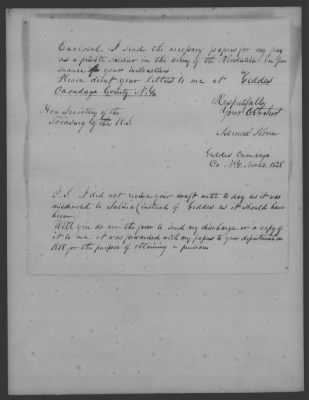 Enclosed I send the necessary papers for my pay
as a private soldier in the army of the Revolution in pur
suance of your instructions
Please direct your letters to me at Geddes
Onondaga County N.Y.
Respectfully
Your Obt Servt
Hon Secretary of the
Treasury of the U.S.
Stone
Geddes Onondaga
Co. N.Y. 1828
P.S. I did not receive your draft until to day as it was
missent to Salina (instead of Geddes as it should have
been
Will you do me the favor to send my discharge or a copy of
it to me. it was forwarded with my papers to your department in
1818 for the purpose of obtaining a pension